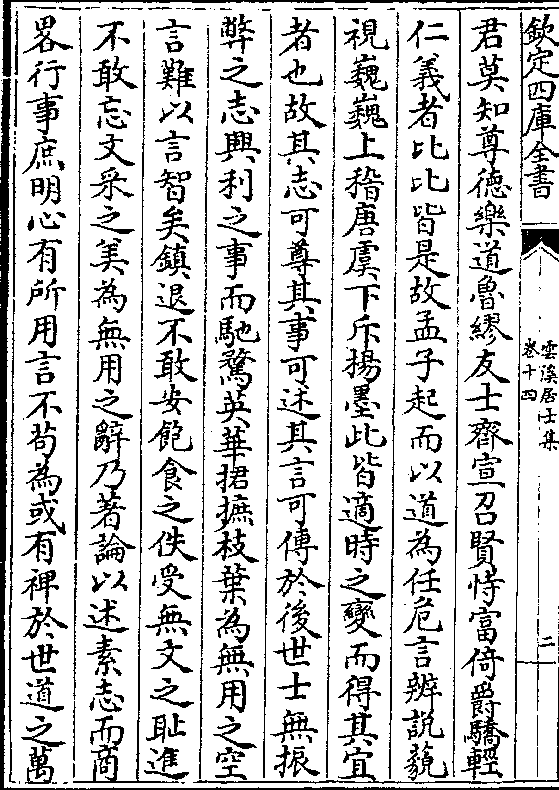 欽定四庫全書
雲溪居士集
卷十四
二
君莫知尊德樂道魯繆友士齊宣召賢恃富倚爵驕輕
仁義者比比皆是故孟子起而以道為任危言辨說藐
視巍巍上稽唐虞下斥揚墨此皆適時之變而得其宜
者也故其志可尊其事可述其言可傳於後世士無振
弊之志興利之事而馳騖英華捃摭枝葉為無用之空
言難以言智矣鎮退不敢安飽食之佚受無文之耻進
不敢忘文采之美為無用之辭乃著論以述素志而商
畧行事庶明心有所用言不苟為或有裨於世道之萬